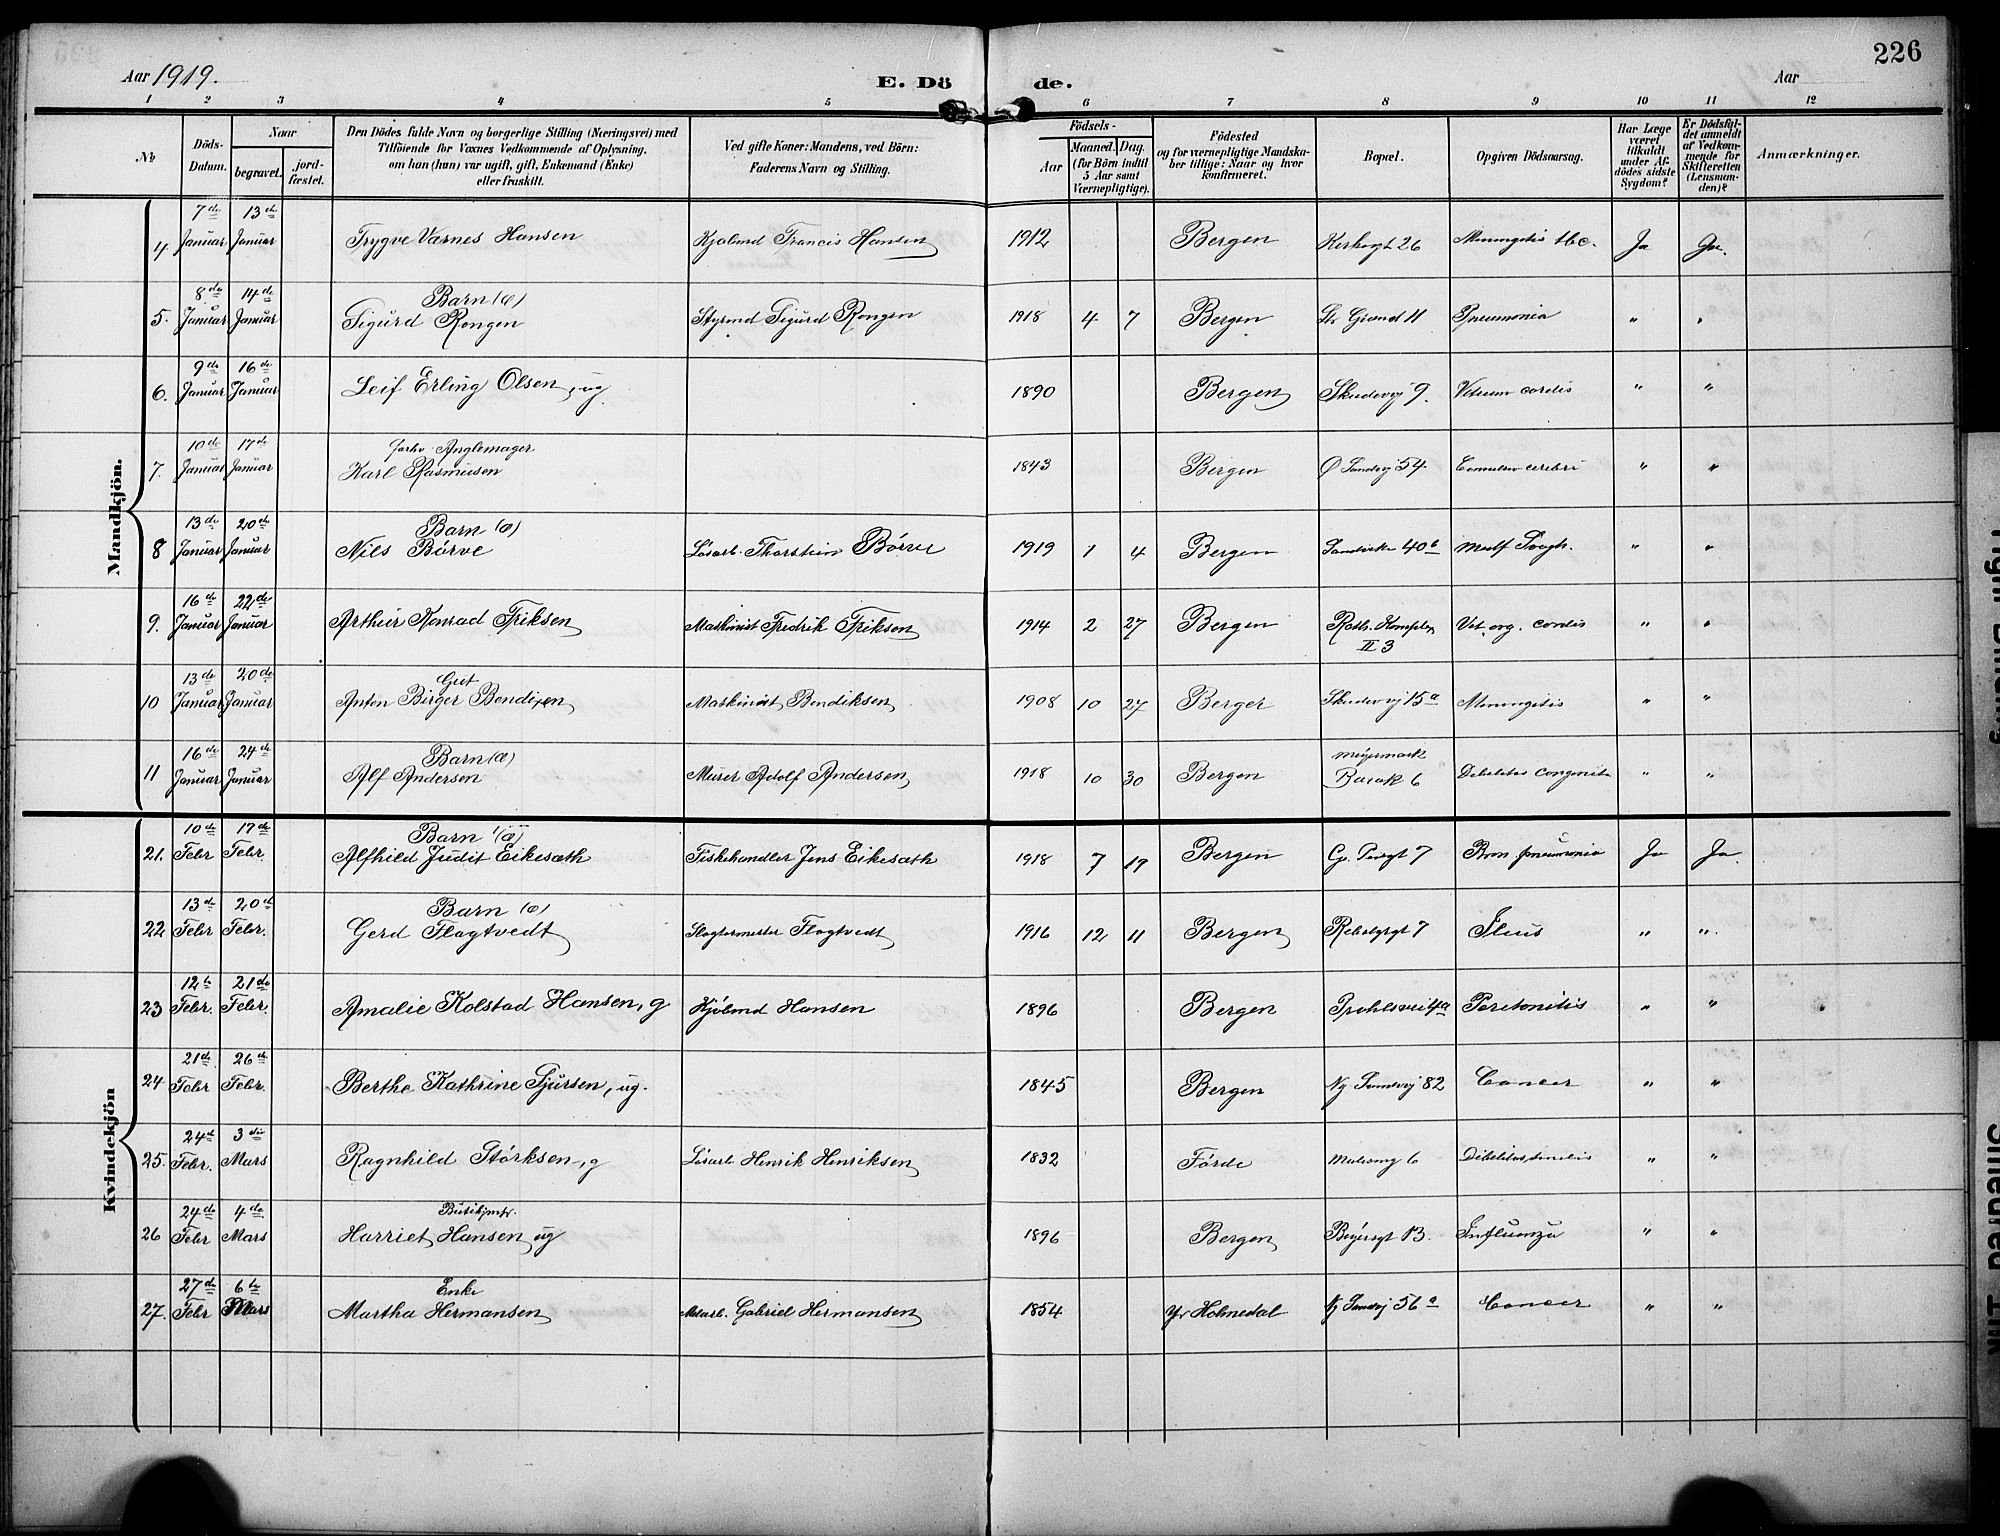 226
Aar 1919. E. Dö de. Aar
1 2 3 4 5 6 7 8 9 10 11 12
No Döds-Datum. Naar begravet. jord-fæstet. Den Dödes fulde Navn og borgerlige Stilling (Næringsvei) med Tilföiende for Voxnes Vedkommende af Oplysning, om han (hun) var ugift, gift, Enkemand (Enke) eller fraskilt. Ved gifte Koner: Mandens, ved Börn: Faderens Navn og Stilling. Födsels- Aar Maaned. Dag. (for Börn indtil 5 Aar samt Værnepligtige). Födested og for værnepligtige Mandskaber tillige: Naar og hvor konfirmeret. Bopæl. Opgiven Dödsaarsag. Har Læge været tilkaldt under Afdödes sidste Sygdom? Er Dödsfaldet anmeldt af Vedkommende for Skifteretten (Lensmanden)? Anmærkninger.
Mandkjön.
7de 13de
4 Januar Januar Trygve Værnes Hansen Kjølmd Francis Hansen 1912 Bergen 26 Meningitis tbc. Ja Ja.
8de 14de Barn (æ)
5. Januar Januar Sigurd Rongen Styrmd Sigurd Rongen 1918 4 7 Bergen Str Grand 11 Pneumonia " "
9de 16de
6. Januar Januar Leif Erling Olsen, ug 1890 Bergen Skudevj 9. Vitium cordis " "
10de 17de forhv Anglemager
7. Januar Januar Karl Rasmusen 1843 Bergen Ø Sandvj 54 cerebri " "
13de 20de Barn (æ)
8 Januar Januar Nils Børve Løsarb. Thorstein Børve 1919 1 4 Bergen 40b " "
16de 22de
9. Januar Januar Arthur Konrad Eriksen Maskinist Fredrik Eriksen 1914 2 27 Bergen Roth. Komplex II 3 Vit. org. cordis " "
13de 20de Gut
10 Januar Januar Anton Birger Bendixen Maskinist Bendiksen 1908 10 27 Bergen Skudevj 15a Meningitis " "
16de 24de Barn (æ)
11 Januar Januar Alf Andersen Murer Adolf Andersen 1918 10 30 Bergen Meyermark Barak 6 Debilitas congenita " "
Kvindekjön
10de 17de Barn (æ)
21. Febr Febr. Alfhild Judit Eikesæth Fiskehandler Jens Eikesæth 1918 7 19 Bergen 7 Bron. pneumonia Ja Ja.
13de 20de Barn (æ)
22 Febr Febr. Gerd Flagtvedt Slagtermester Flagtvedt 1916 12 11 Bergen 7 Ileus " "
12te 21de
23 Febr. Febr. Amalie Kolstad Hansen, g Kjølmd Hansen 1896 Bergen Peritonitis " "
21de 26de
24 Febr Febr. Berthe Kathrine Sjursen, ug. 1845 Bergen Ny Sandvej 82 Cancer " "
24de 3die
25. Febr. Mars Ragnhild Størksen, g Løsarb Henrik Henriksen 1832 Førde 6 Debilitas senilis " "
24de 4de Butikjmfr.
26 Febr Mars Harriet Hansen ug 1896 Bergen Bøiersgt 13. Influenza " "
27de 6te Enke
27. Febr Mars Martha Hermansen Gabriel Hermansen 1854 Yr Holmedal Ny Sandvej 56a Cancer " "